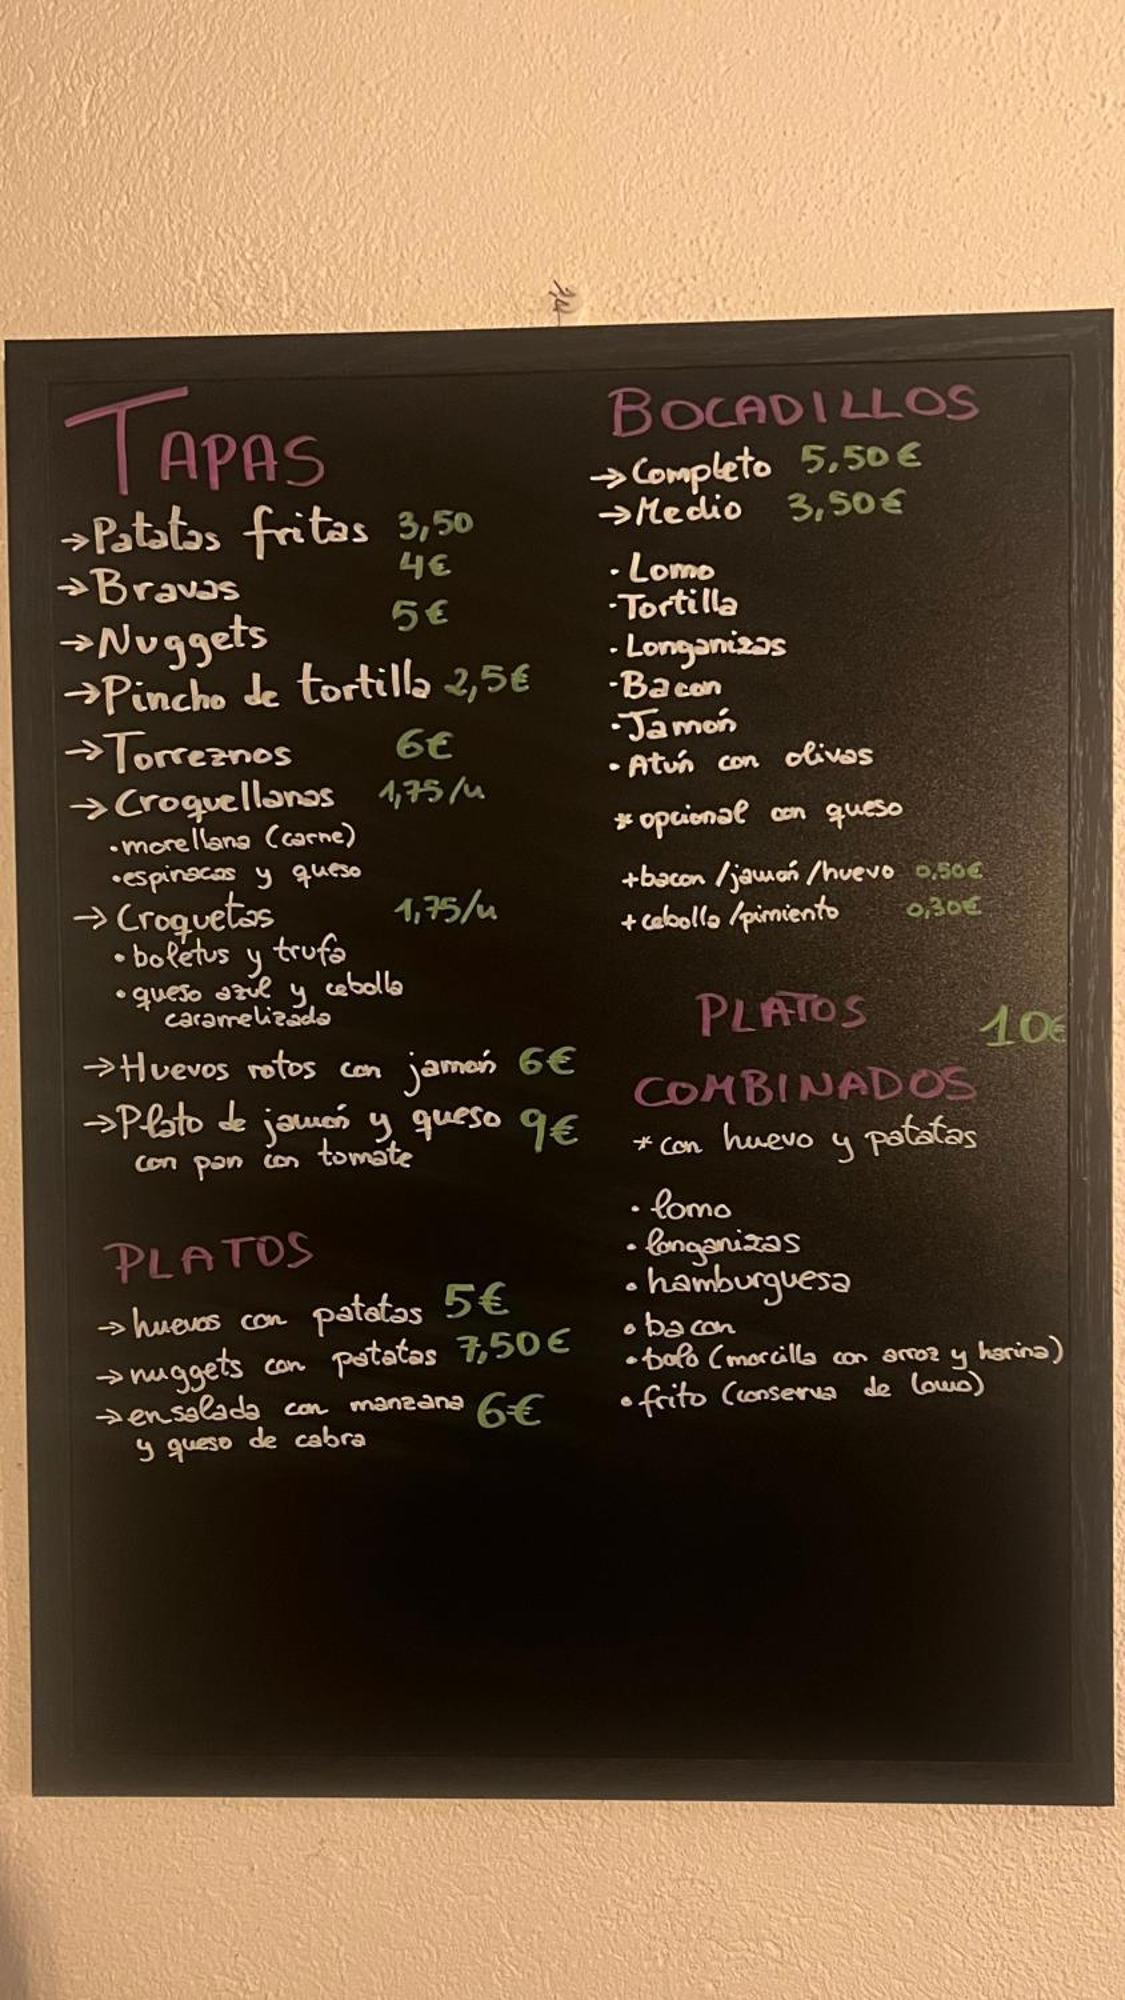 TAPAS
→Patatas fritas 3,50
→Bravas 4€
→Nuggets 5€
→Pincho de tortilla 2,5€
→Torreznos 6€
→Croquellanas 1,75/u
·morellana (carne)
·espinacas y queso
→Croquetas 1,75/u
·boletus y trufa
·queso azul y cebolla
caramelizada
→Huevos rotos con jamón 6€
→Plato de jamón y queso 9€
con pan con tomate
PLATOS
→huevos con patatas 5€
→nuggets con patatas 7,50€
→ensalada con manzana 6€
y queso de cabra
BOCADILLOS
→Completo 5,50€
→Medio 3,50€
·Lomo
·Tortilla
·Longanizas
·Bacon
·Jamón
·Atún con olivas
*opcional con queso
+bacon/jamón/huevo 0,50€
+cebolla/pimiento 0,30€
PLATOS 10€
COMBINADOS
*con huevo y patatas
·lomo
·longanizas
·hamburguesa
·bacon
·bolo (morcilla con arroz y harina)
·frito (conserva de lomo)